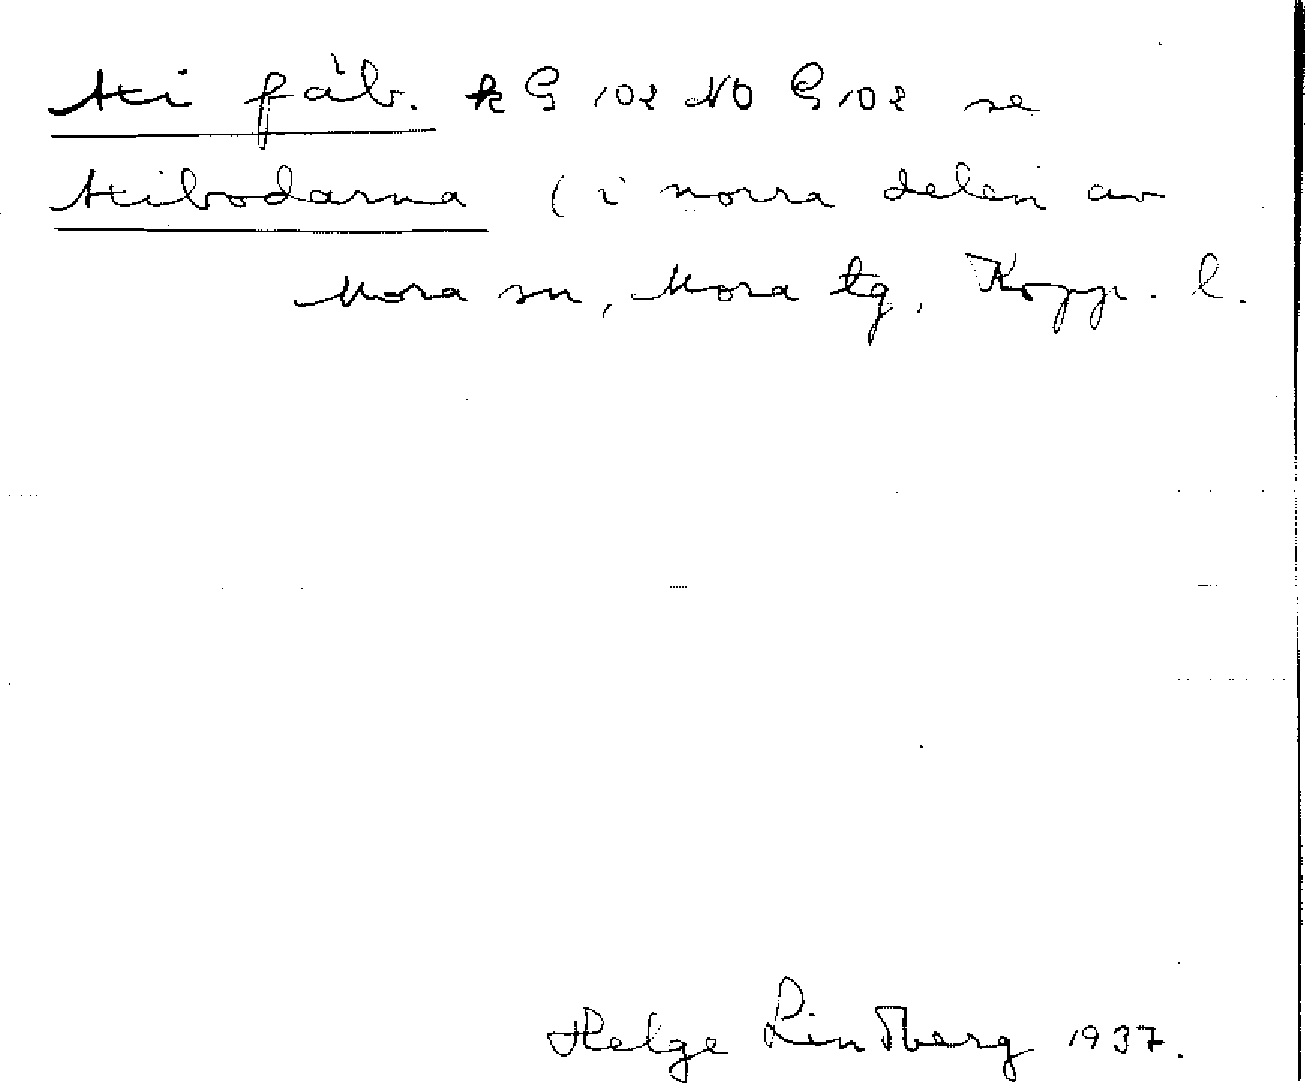 Axi fäb. k G 102 NO G 102 se
Axibodarna (i norra delen av
Mora sn, Mora tg, Kopp. l.
Helge Lindberg 1937.